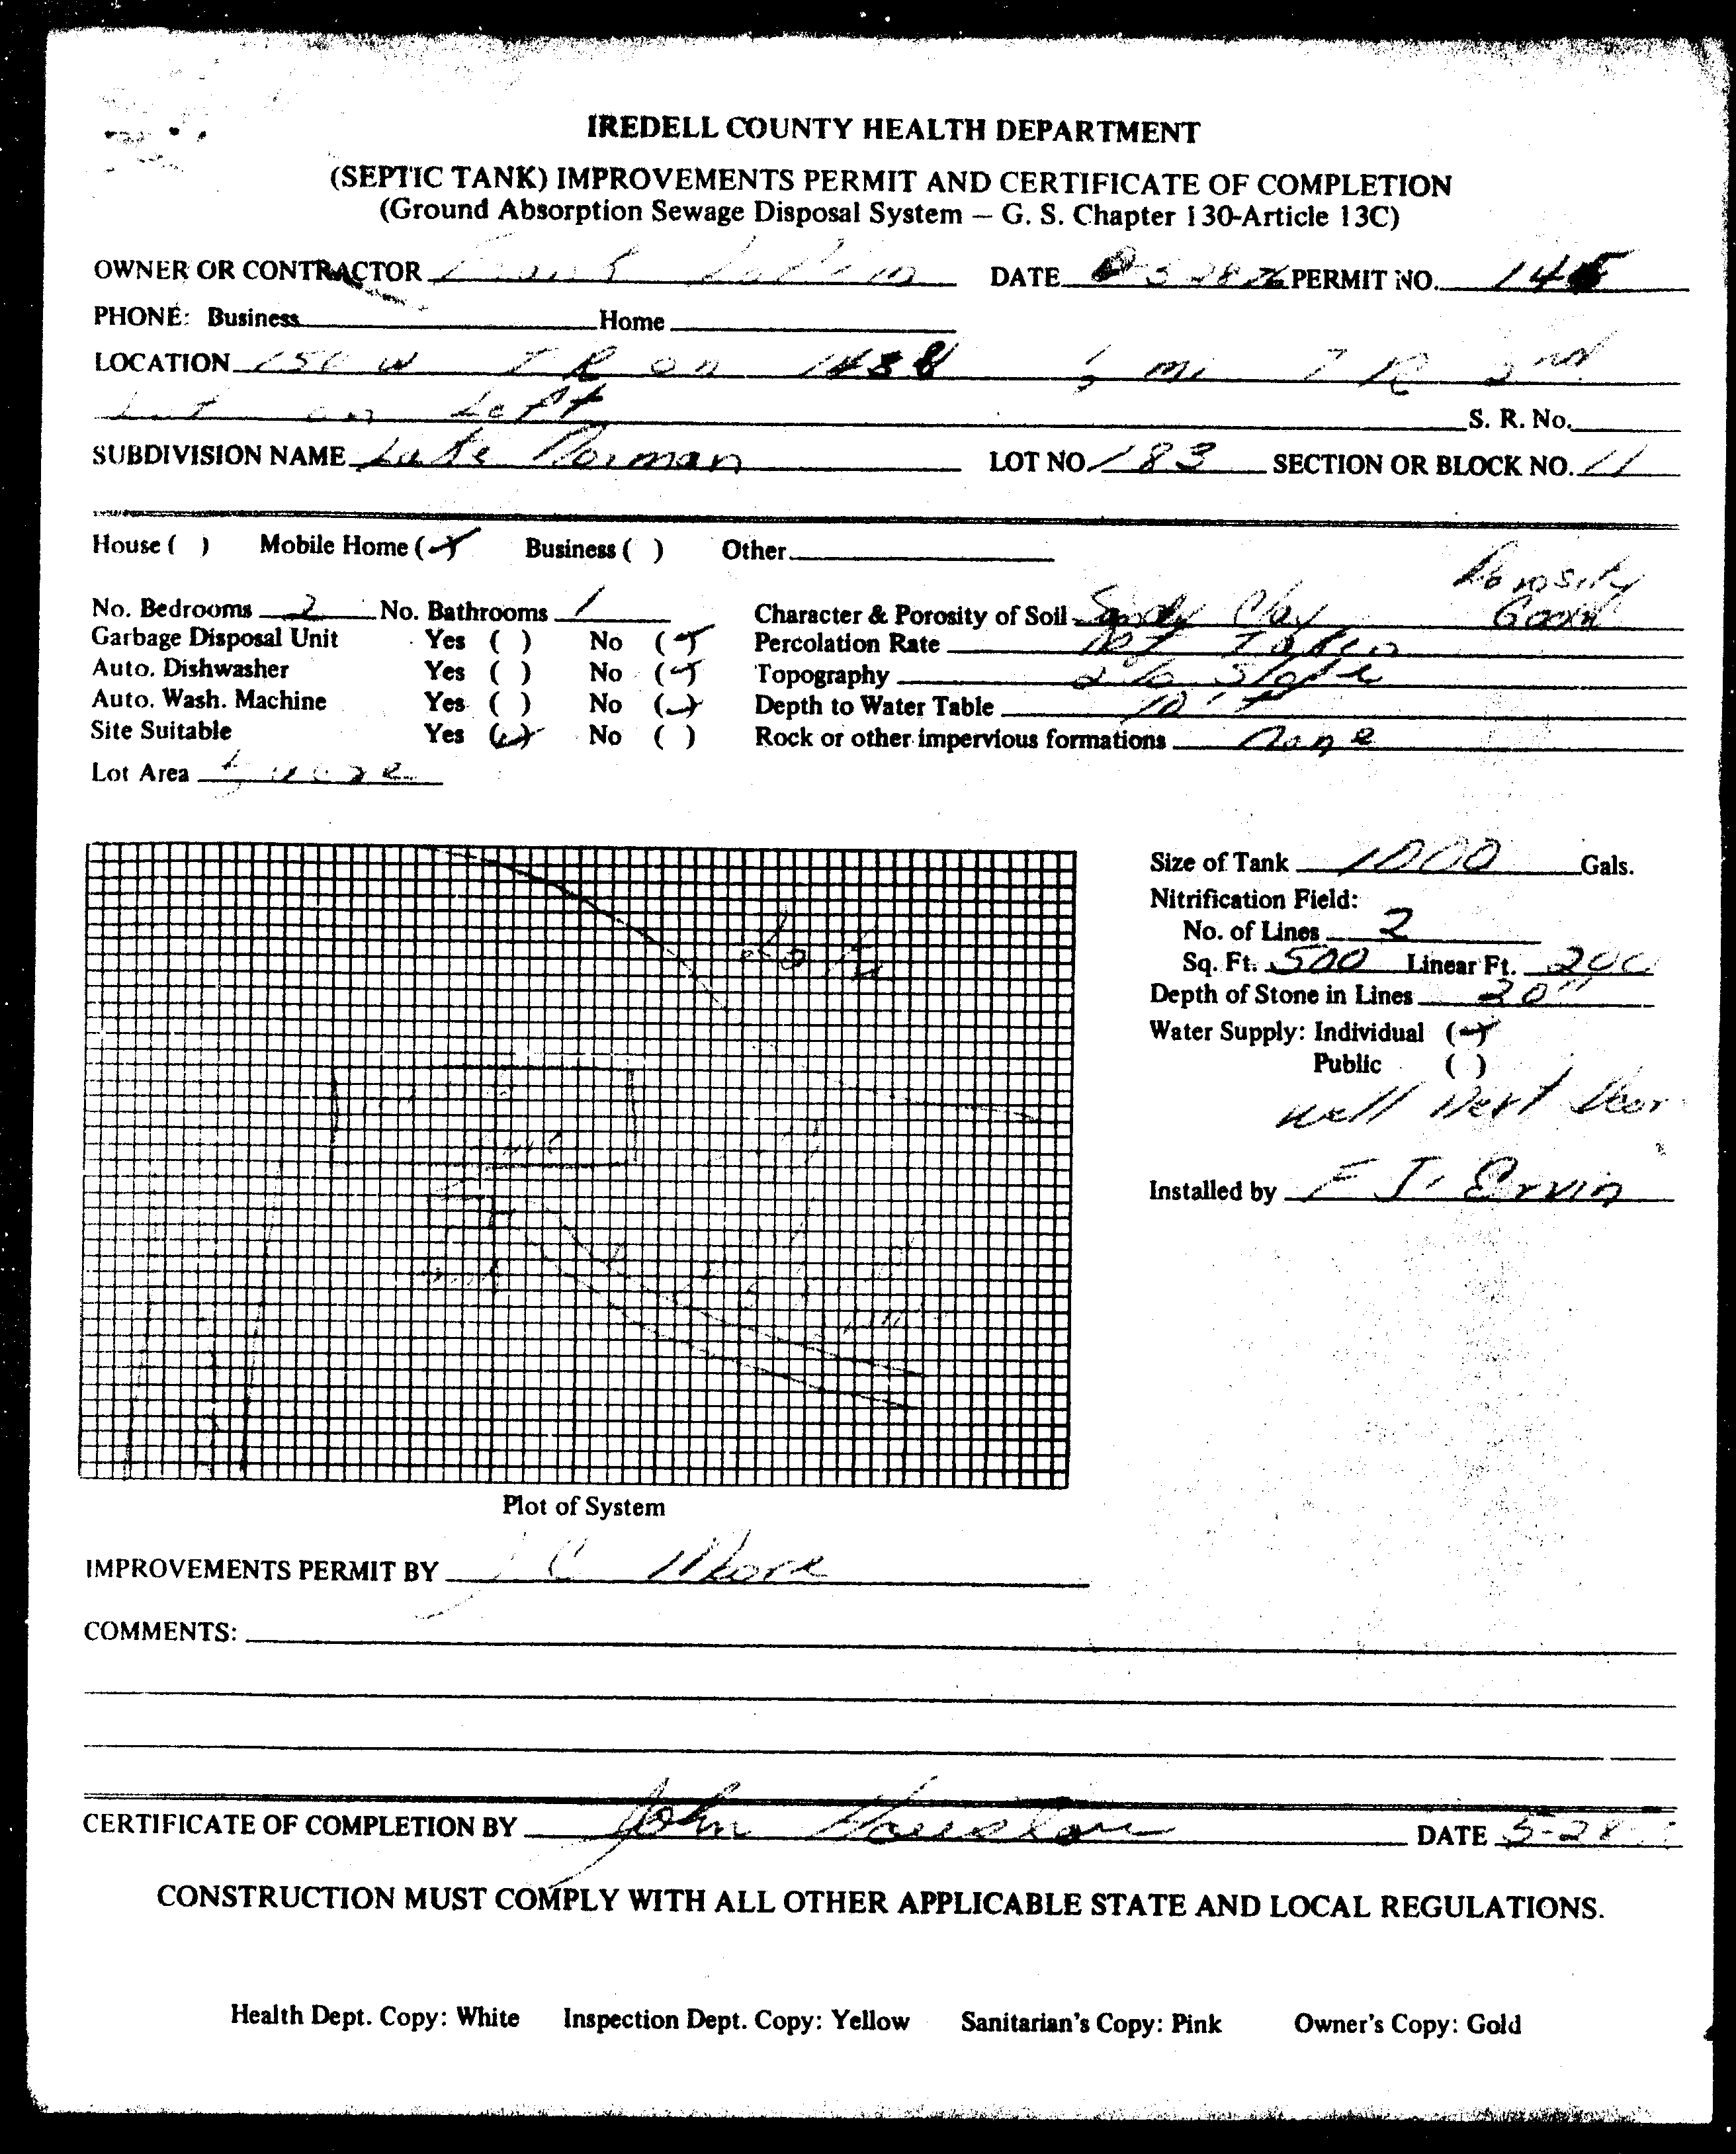 IREDELL COUNTY HEALTH DEPARTMENT
(SEPTIC TANK) IMPROVEMENTS PERMIT AND CERTIFICATE OF COMPLETION
(Ground Absorption Sewage Disposal System — G. S. Chapter 130-Article 13C)
OWNER OR CONTRACTOR DATE 5 28 76 PERMIT NO.
PHONE: Business Home
LOCATION 150 W T R on 1488 mi T R 2nd
Lot on Left S. R. No.
SUBDIVISION NAME Lake Norman LOT NO. 183 SECTION OR BLOCK NO. 11
House ( ) Mobile Home (x) Business ( ) Other
Porosity
No. Bedrooms 2 No. Bathrooms 1 Character & Porosity of Soil Sandy Clay Good
Garbage Disposal Unit Yes ( ) No (x) Percolation Rate Not Taken
Auto. Dishwasher Yes ( ) No (x) Topography 2% Slope
Auto. Wash. Machine Yes ( ) No (x) Depth to Water Table 10'+
Site Suitable Yes (x) No ( ) Rock or other impervious formations none
Lot Area acre
Size of Tank 1000 Gals.
Nitrification Field:
No. of Lines 2
Sq. Ft. 500 Linear Ft. 200
Depth of Stone in Lines 20"
Water Supply: Individual (x)
Public ( )
well Next Door
Installed by F J. Ervin
Plot of System
IMPROVEMENTS PERMIT BY J C Moore
COMMENTS:
CERTIFICATE OF COMPLETION BY John DATE 5-28
CONSTRUCTION MUST COMPLY WITH ALL OTHER APPLICABLE STATE AND LOCAL REGULATIONS.
Health Dept. Copy: White Inspection Dept. Copy: Yellow Sanitarian's Copy: Pink Owner's Copy: Gold